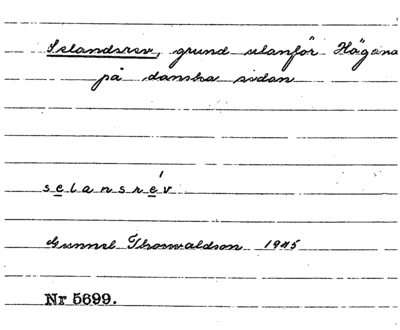 Selandsrev, grund utanför Högana
på danska sidan
selansrév
Gunnel Thorwaldson 1945
Nr 5699.